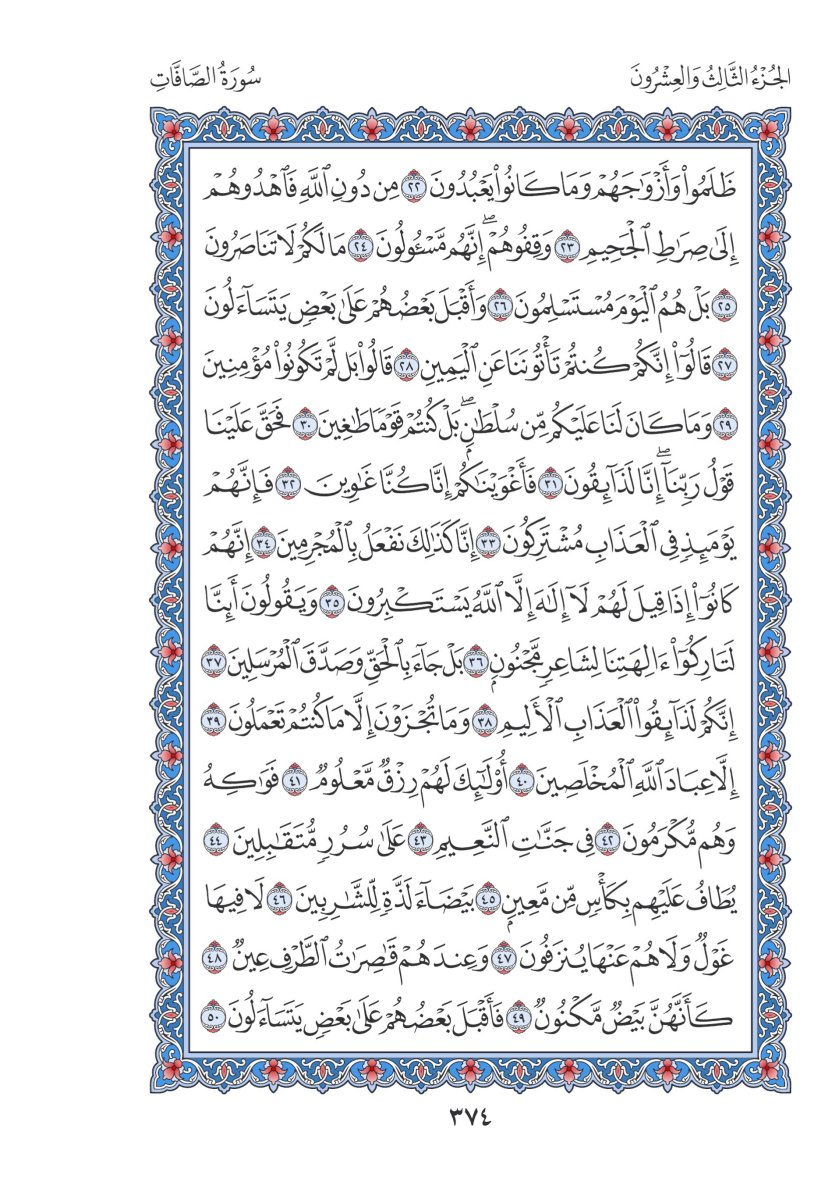 الجُزْءُ الثَّالِثُ وَالعِشْرُونَ
سُورَةُ الصَّافَّاتِ
ظَلَمُواْ وَأَزْوَٰجَهُمْ وَمَا كَانُواْ يَعْبُدُونَ ٢٢ مِن دُونِ ٱللَّهِ فَٱهْدُوهُمْ
إِلَىٰ صِرَٰطِ ٱلْجَحِيمِ ٢٣ وَقِفُوهُمْۖ إِنَّهُم مَّسْـُٔولُونَ ٢٤ مَا لَكُمْ لَا تَنَاصَرُونَ
٢٥ بَلْ هُمُ ٱلْيَوْمَ مُسْتَسْلِمُونَ ٢٦ وَأَقْبَلَ بَعْضُهُمْ عَلَىٰ بَعْضٍ يَتَسَآءَلُونَ
٢٧ قَالُوٓاْ إِنَّكُمْ كُنتُمْ تَأْتُونَنَا عَنِ ٱلْيَمِينِ ٢٨ قَالُواْ بَل لَّمْ تَكُونُواْ مُؤْمِنِينَ
٢٩ وَمَا كَانَ لَنَا عَلَيْكُم مِّن سُلْطَٰنٍۭۖ بَلْ كُنتُمْ قَوْمًا طَٰغِينَ ٣٠ فَحَقَّ عَلَيْنَا
قَوْلُ رَبِّنَآۖ إِنَّا لَذَآئِقُونَ ٣١ فَأَغْوَيْنَٰكُمْ إِنَّا كُنَّا غَٰوِينَ ٣٢ فَإِنَّهُمْ
يَوْمَئِذٍ فِي ٱلْعَذَابِ مُشْتَرِكُونَ ٣٣ إِنَّا كَذَٰلِكَ نَفْعَلُ بِٱلْمُجْرِمِينَ ٣٤ إِنَّهُمْ
كَانُوٓاْ إِذَا قِيلَ لَهُمْ لَآ إِلَٰهَ إِلَّا ٱللَّهُ يَسْتَكْبِرُونَ ٣٥ وَيَقُولُونَ أَىِٕنَّا
لَتَارِكُوٓاْ ءَالِهَتِنَا لِشَاعِرٍ مَّجْنُونٍۭ ٣٦ بَلْ جَآءَ بِٱلْحَقِّ وَصَدَّقَ ٱلْمُرْسَلِينَ ٣٧
إِنَّكُمْ لَذَآئِقُواْ ٱلْعَذَابِ ٱلْأَلِيمِ ٣٨ وَمَا تُجْزَوْنَ إِلَّا مَا كُنتُمْ تَعْمَلُونَ ٣٩
إِلَّا عِبَادَ ٱللَّهِ ٱلْمُخْلَصِينَ ٤٠ أُوْلَٰٓئِكَ لَهُمْ رِزْقٌ مَّعْلُومٌ ٤١ فَوَٰكِهُ
وَهُم مُّكْرَمُونَ ٤٢ فِي جَنَّٰتِ ٱلنَّعِيمِ ٤٣ عَلَىٰ سُرُرٍ مُّتَقَٰبِلِينَ ٤٤
يُطَافُ عَلَيْهِم بِكَأْسٍ مِّن مَّعِينٍۭ ٤٥ بَيْضَآءَ لَذَّةٍ لِّلشَّٰرِبِينَ ٤٦ لَا فِيهَا
غَوْلٌ وَلَا هُمْ عَنْهَا يُنزَفُونَ ٤٧ وَعِندَهُمْ قَٰصِرَٰتُ ٱلطَّرْفِ عِينٌ ٤٨
كَأَنَّهُنَّ بَيْضٌ مَّكْنُونٌ ٤٩ فَأَقْبَلَ بَعْضُهُمْ عَلَىٰ بَعْضٍ يَتَسَآءَلُونَ ٥٠
٣٧٤